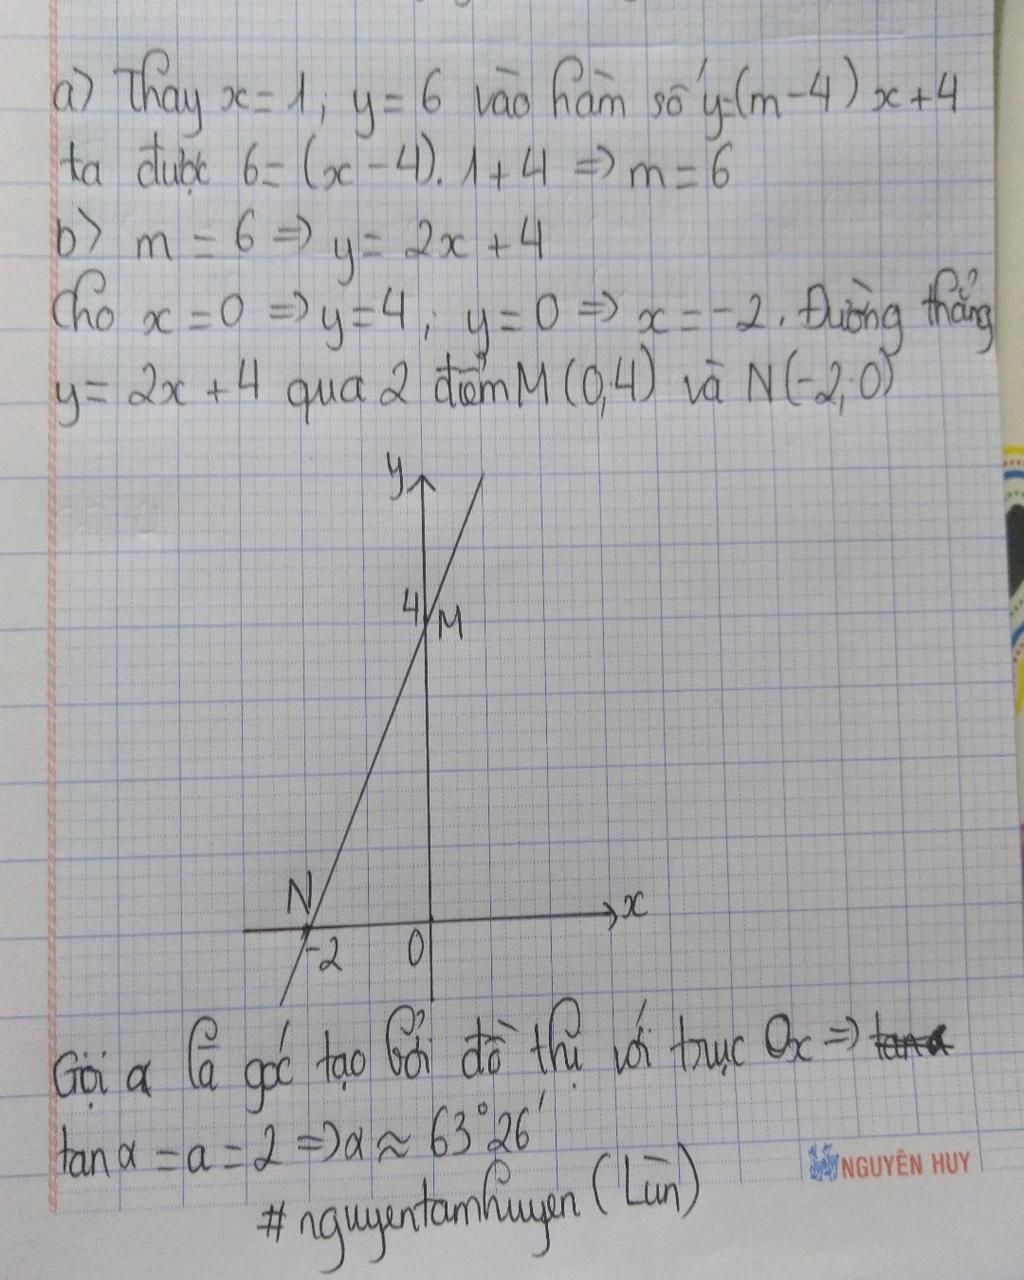 a) Thay x = 1; y = 6 vào hàm số y=(m-4)x+4
ta được 6=(x-4).1+4 => m=6
b) m = 6 => y = 2x + 4
Cho x = 0 => y = 4; y = 0 => x = -2. Đường thẳng
y = 2x + 4 qua 2 điểm M(0,4) và N(-2,0)
y
4
M
N
x
-2
0
Gọi α là góc tạo bởi đồ thị với trục Ox =>
tan α = a = 2 => α ≈ 63°26'
NGUYÊN HUY
#nguyentamhuyen (Lùn)